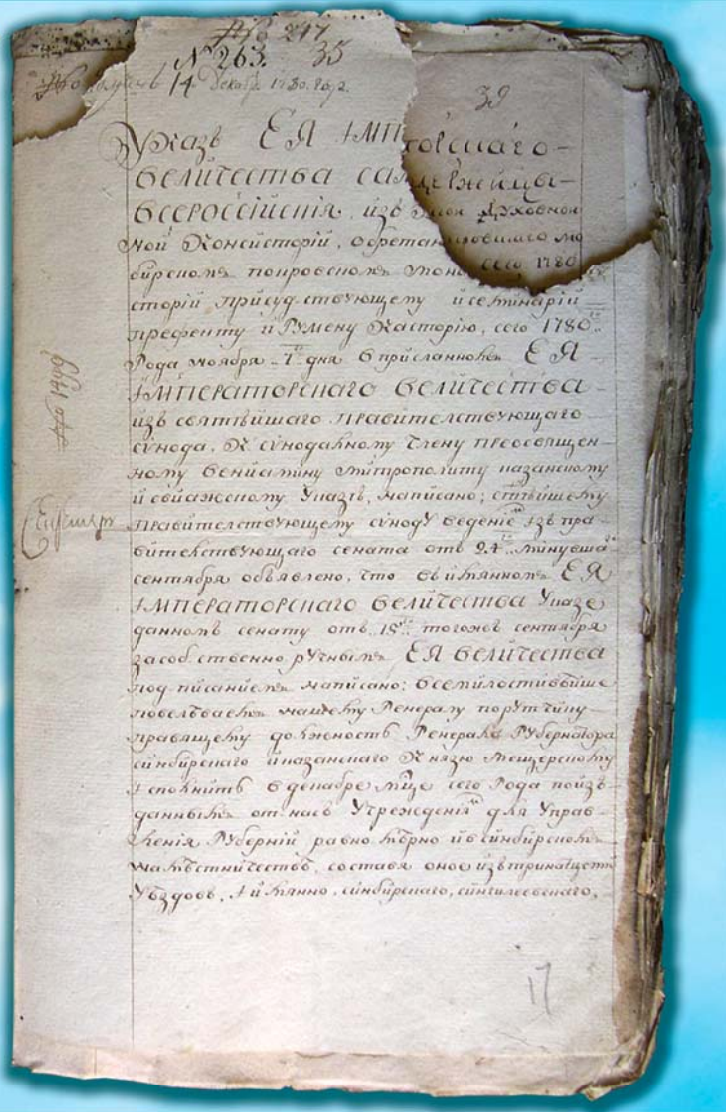 № 217
№ 263. 35
Получень 14 Декабр. 1780. году.
39
Указъ ЕЯ ІМПЕ торскаго
величества сам держицы
всероссійскія, изъ духовной
ной Консисторіи, обретающовшагося
бирскомъ покровскомъ мона сего 1780
сторіи присудствующему и семинаріи
префекту Игумену Касторію, сего 1780
Года ноября 7 дня в присланномъ ЕЯ
ІМПЕРАТОРСКАГО величества
изъ святѣйшаго правителствующаго
сѵнода, К сѵнодалному Члену преосвящен
ному Веніамину митрополиту казанскому
и свіажскому Указѣ, написано; стѣйшему
правителствующему сѵноду ведение изъ пра
вителствующаго сената отъ 24 минувша
сентября объявлено, что въ имянномъ ЕЯ
ІМПЕРАТОРСКАГО величества Указе
данномъ сенату отъ 15 тогожъ сентября
за собственноручнымъ ЕЯ величества
подписаніемъ написано: всемилостивѣйше
повелѣваемъ нашему Генералу порутчику
правящему должность Генерала Губернатора
синбирскаго и казанскаго Князю мещерскому
Ісполнить в декабре мцѣ сего Года по изъ
даннымъ от насъ Учрежденія для Управ
ленія Губерній равномѣрно и в синбирскомъ
намѣстничествѣ, составя оное изъ тринатцети
Уѣздовъ, Іимянно, синбирскаго, сингилеевскаго,
17